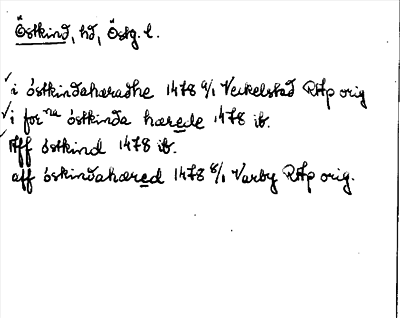 Östkind, hd, Östg. l.
i östkindahæradhe 1478 9/1 Veckelstad RAp orig
i forne östkinda hærede 1478 ib.
Aff östkind 1478 ib.
aff öskindahæred 1478 8/1 Varby RAp orig.